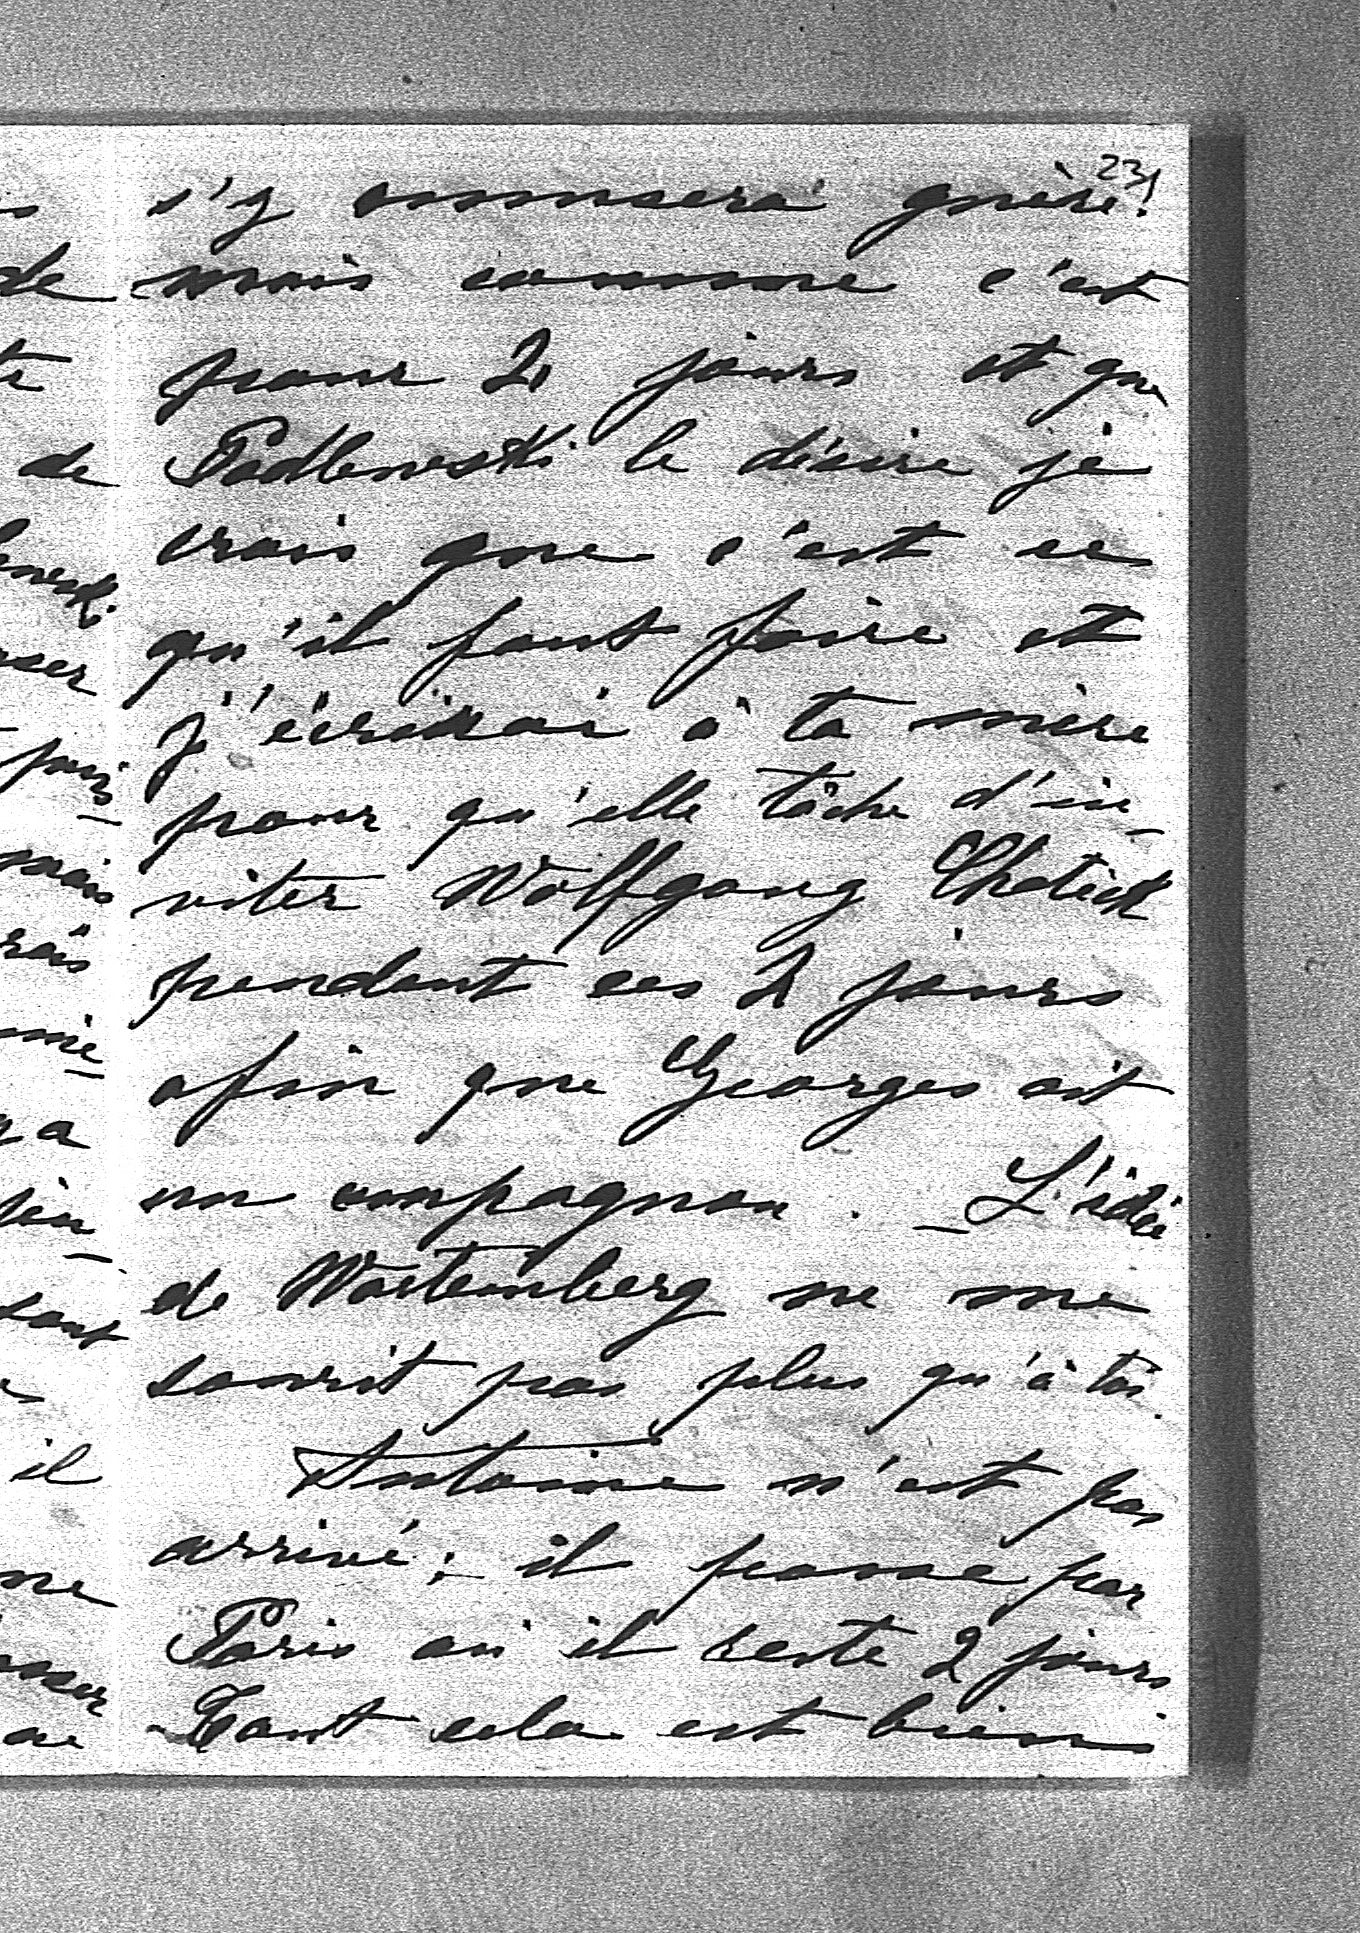 231
s'y amusera guère.
mais comme c'est
pour 2 jours et que
Podlewski le désire je
crois que c'est ce
qu'il faut faire et
j'écrirai à ta mère
pour qu'elle tâche d'in-
viter Wolfgang
pendant ces 2 jours
afin que Georges ait
un compagnon. _ L'idée
de Wartemberg ne me
sourit pas plus qu'à toi.
Antoine n'est pas
arrivé; il passe par
Paris où il reste 2 jours
Tout cela est bien